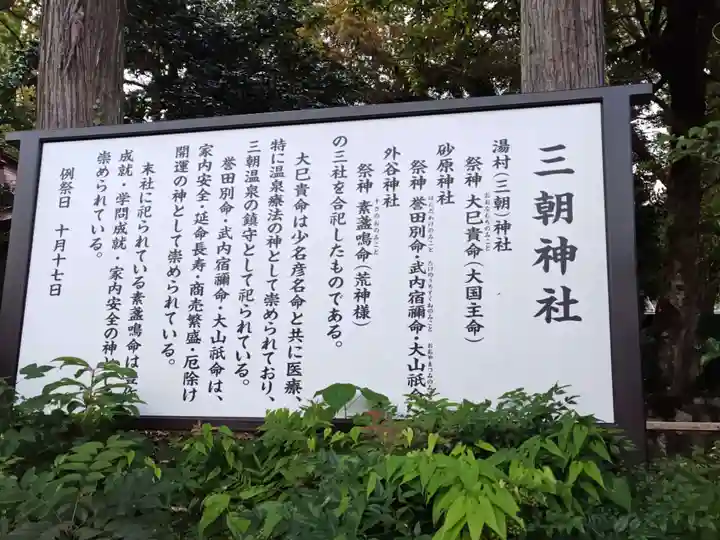 三朝神社
湯村(三朝)神社
祭神 大巳貴命(大国主命)
おおなむちのみこと
砂原神社
祭神 誉田別命・武内宿禰命・大山祇命
ほんだわけのみこと たけのうちすくねのみこと おおやまつみのみこと
外谷神社
祭神 素盞鳴命(荒神様)
すさのおのみこと
の三社を合祀したものである。
大巳貴命は少名彦名命と共に医療、
特に温泉療法の神として崇められており、
三朝温泉の鎮守として祀られている。
誉田別命・武内宿禰命・大山祇命は、
家内安全・延命長寿・商売繁盛・厄除け
開運の神として崇められている。
末社に祀られている素盞鳴命は
成就・学問成就・家内安全の神
崇められている。
例祭日 十月十七日